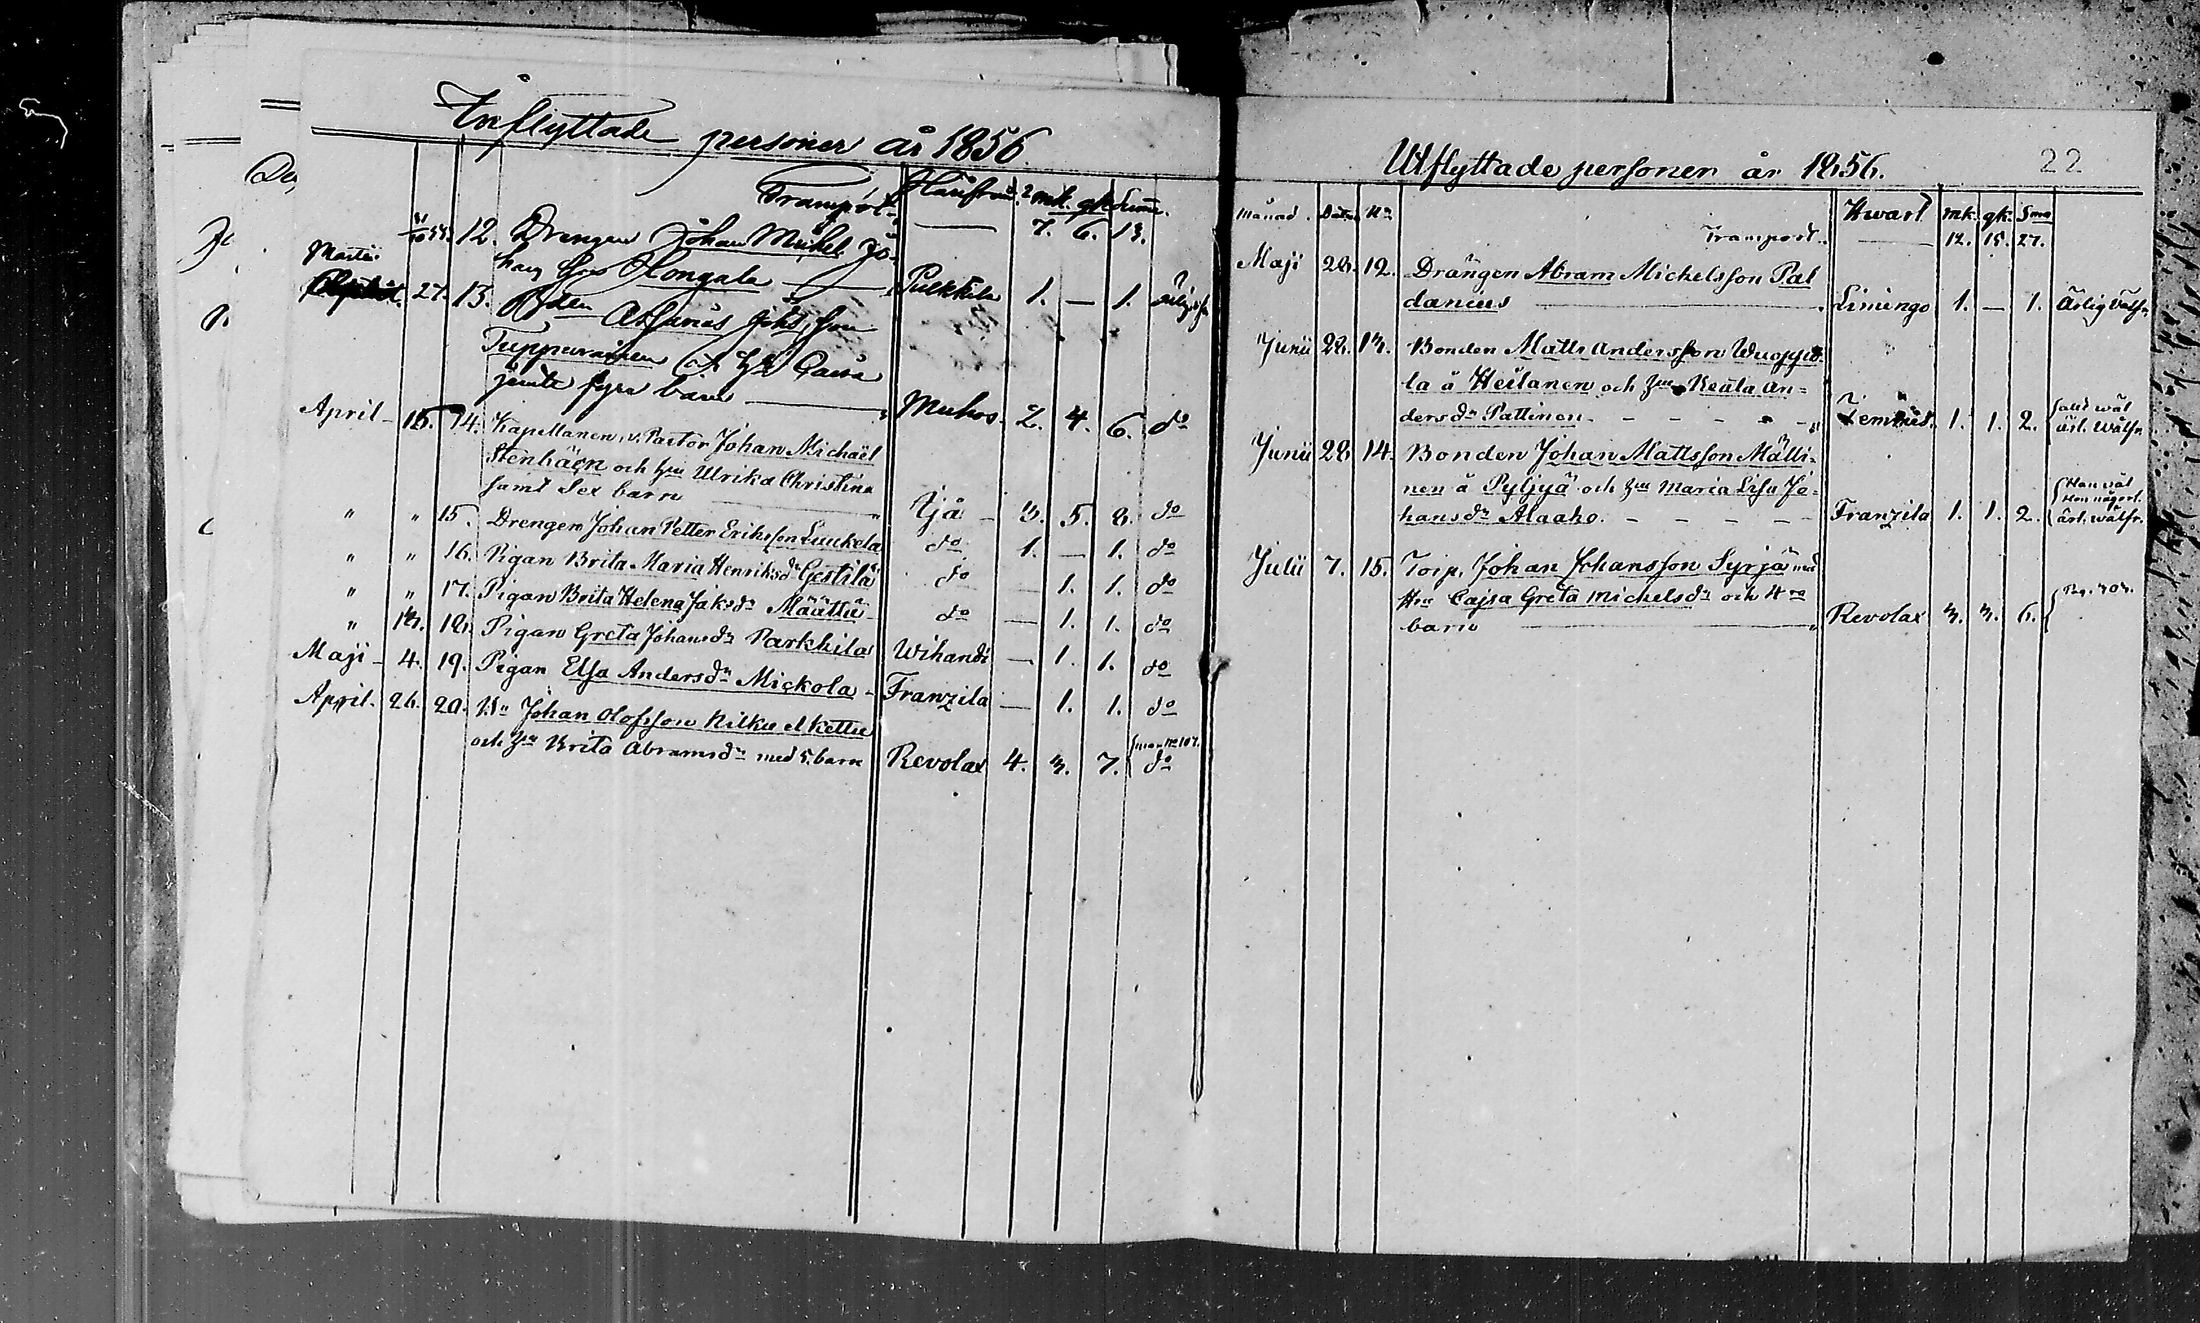 Inflyttade personer år 1856
Transport 7. 6. 13.
12. Drengen Johan Michel Jo-
hans Son Hongala — Pulkkila 1. — 1.
Martii 27. 13.
Tuppurainen
jemte fyra barn — Muhos. 2. 4. 6. do
April 15. 14. Kapellanen, v. Pastor Johan Michaël
Stenbäcn och Hu Ulrika Christina
samt Sex barn — Ijå 3. 5. 8. do
" " 15. Drengen Johan Petter Eriksson Luukela do 1. — 1. do
" " 16. Pigan Brita Maria Henriksdr Gestilä do — 1. 1. do
" " 17. Pigan Brita Helena Jaksdr Määttä do — 1. 1. do
" 13. 18. Pigan Greta Johansdr Parkkila Wihandi — 1. 1. do
Maji 4. 19. Pigan Elsa Andersdr Mickola Franzila — 1. 1. do
April. 26. 20. Bn Johan Olofsson Kilku el Kettu
och Hu Brita Abramsdr med 5. barn Revolax 4. 3. 7. do
Utflyttade personer år 1856. 22
Månad. Datum No Hwart mk. qk. Sma
Transport. — 12. 15. 27.
Maji 28. 12. Drängen Abram Michelsson Pal
danius — Limingo 1. — 1. Ärlig Välfr.
Junii 22. 13. Bonden Matts Andersson
la å Heilanen och Hu Beata An=
dersdr Pattinen. - - - - 1. 1. 2. ärl. Wälfr.
Junii 28 14. Bonden Johan Mattsson Mälli-
nen å Pyljyä och Hu Maria Lisa Jo-
hansdr Alaaho. - - - - Franzila 1. 1. 2. ärl. wälfr.
Julii 7. 15. Torp. Johan Johansson Syrjä med
Hu Cajsa Greta Michelsdr och 4ra
barn — Revolax 3. 3. 6.